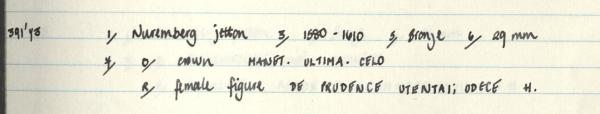 391'73 1/ Nuremberg jetton 3/ 1580-1610 5/ Bronze 6/ 29mm
7/ O/ crown MANET. ULTIMA. CELO
R/ female figure DE PRUDENCE UTENTAI; ODECE H.